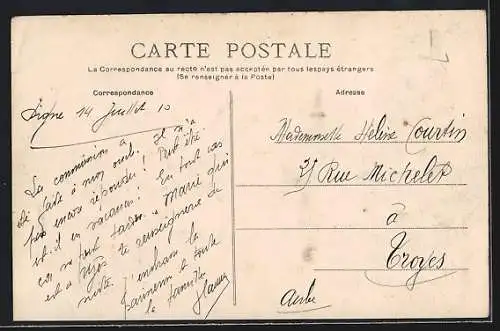 CARTE POSTALE
La Correspondance au recto n'est pas acceptée par tous les pays étrangers
(Se renseigner à la Poste)
Correspondance
Adresse
Signe 14 Juillet 10
La commission a
été faite à mon oncle. Il n'a
pas encore répondu! Peut être
est-il en vacances! En tout cas
on va tout faire. Marie qui
est à te renseignera de
suite.
J'embrasse la
la famille
Mademoiselle Hélène Courtin
25 Rue Michelet
à
Troyes
Aube